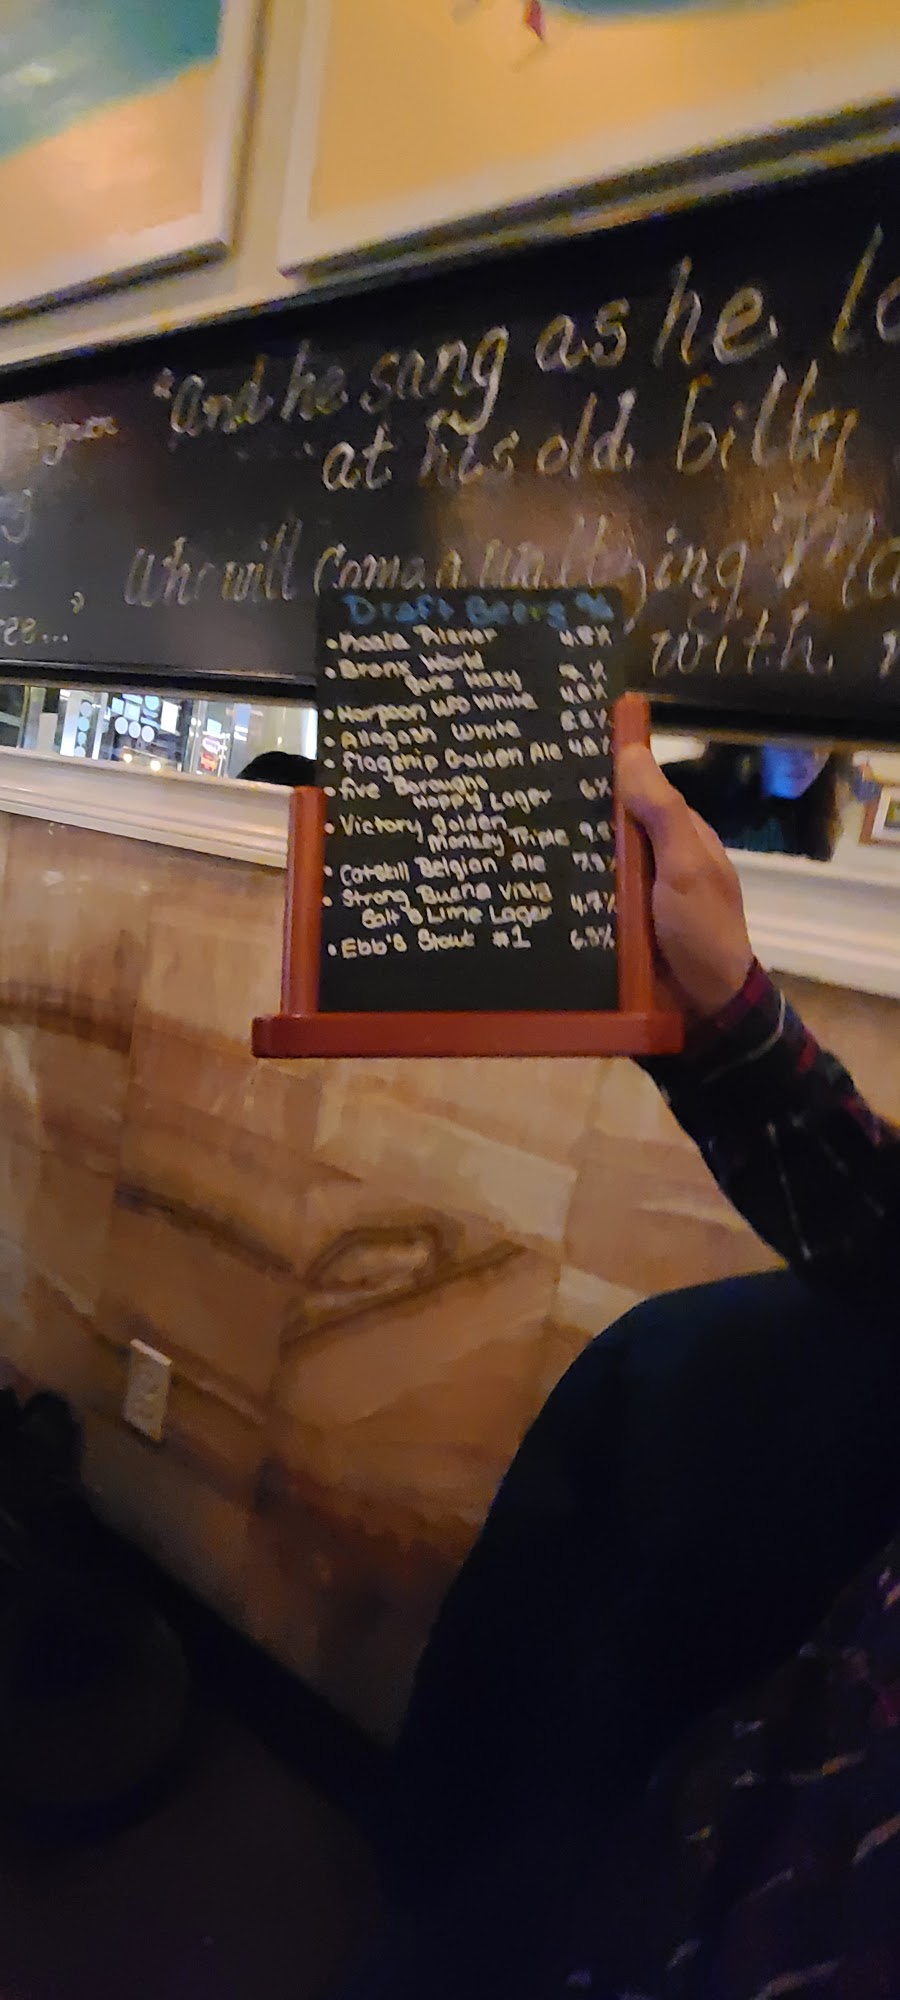 "And he sang as he
at his old billy
who will come a waltzing
with
Draft Beers
Koala Pilsner 4.8%
• Bronx World
Hazy
• Harpoon UFO White 4.8%
• Allagash White
• Flagship Golden Ale 4.8%
• Five Boroughs
Hoppy Lager 6%
• Victory Golden
Monkey Triple
• Catskill Belgian Ale
• Strong Buena Vista
Salt & Lime Lager 4.7%
• Ebb's Stout #1